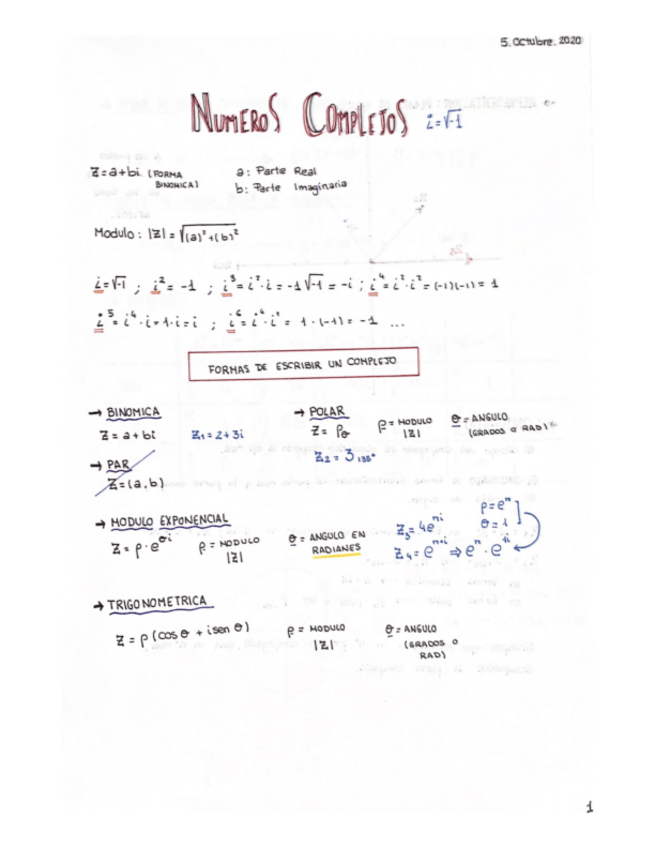 5. Octubre. 2020
NUMEROS COMPLEJOS i=√-1
Z=a+bi (FORMA BINOMICA) a: Parte Real
b: Parte Imaginaria
Modulo: |Z| = √(a)²+(b)²
i=√-1 ; i² = -1 ; i³ = i²·i = -1√-1 = -i ; i⁴ = i²·i² = (-1)(-1) = 1
i⁵ = i⁴·i = 1·i = i ; i⁶ = i⁴·i² = 1·(-1) = -1 ...
FORMAS DE ESCRIBIR UN COMPLEJO
→ BINOMICA
Z = a + bi Z₁ = 2+3i
→ POLAR
Z = ρ_θ ρ = MODULO |Z| θ = ANGULO (GRADOS O RAD)
Z₂ = 3
→ PAR
Z=(a,b)
→ MODULO EXPONENCIAL
Z = ρ·e^θi ρ = MODULO |Z| θ = ANGULO EN RADIANES
Z₃ = 4e^πi
Z₄ = e^π+i ⇒ e^π · e^1i
ρ = e^π
θ = 1
→ TRIGONOMETRICA
Z = ρ (cos θ + i sen θ) ρ = MODULO |Z| θ = ANGULO (GRADOS O RAD)
1